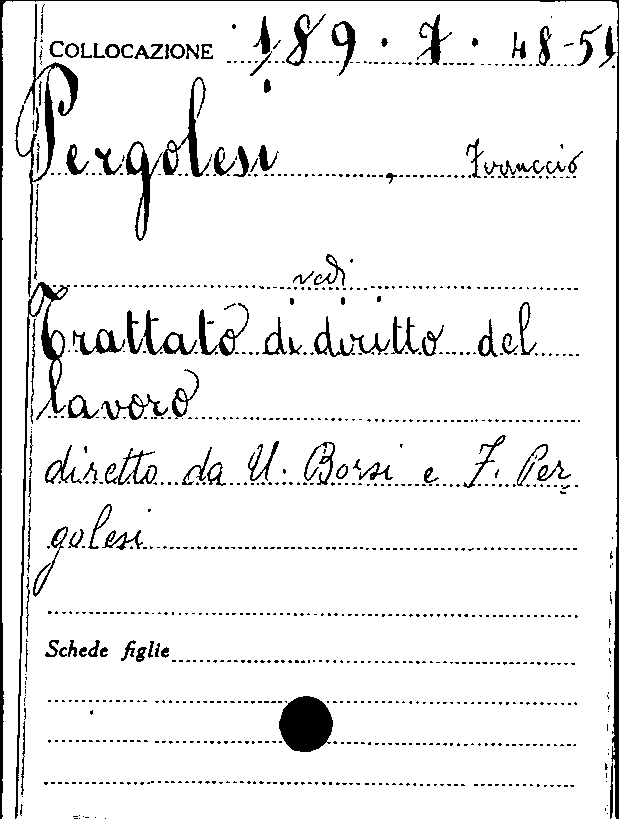 COLLOCAZIONE 189 . 7 . 48-51
Pergolesi , Ferruccio
vedi
Trattato di diritto del
lavoro
diretto da U. Borsi e F. Per=
golesi
Schede figlie